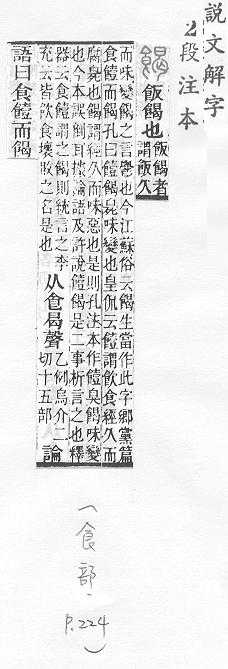 說文解字
2段注本
餲 飯餲也 飯餲者
謂飯久
而味變餲之言鬱也今江蘇俗云餲生當作此字鄉黨篇
食饐而餲孔曰饐餲臭味變也皇侃云饐謂飲食經久而
腐臭也餲謂經久而味惡也是則孔注本作饐臭餲味變
也今本誤倒耳據論語及許說饐餲是二事析言之也釋
器云食饐謂之餲則統言之李
充云皆飲食壞敗之名是也
从食曷聲 乙例烏介二
切十五部 論
語曰食饐而餲
(食部,
P.224)